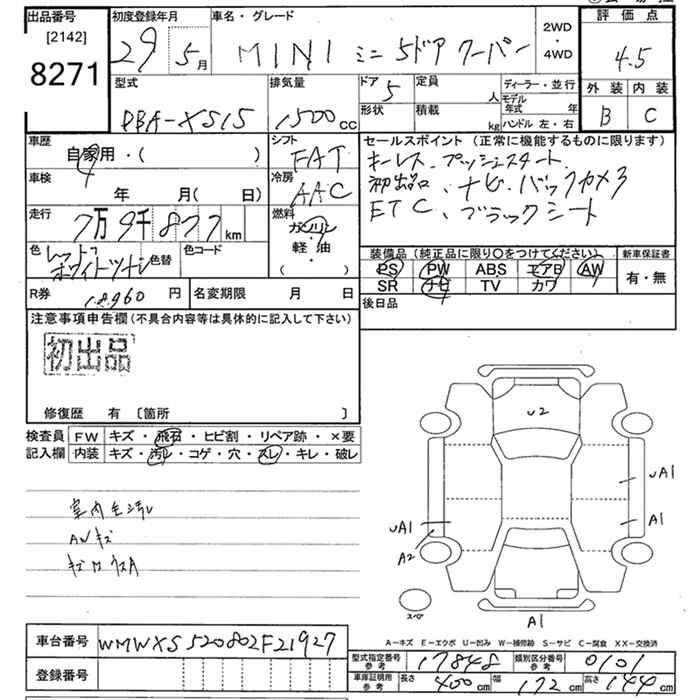 出品番号 初度登録年月 車名・グレード 2WD・4WD 評価点
[2142] 8271 29 5月 MINI ミニ 5ドア クーパー 4.5
型式 排気量 ドア 定員 ディーラー・並行 外装 内装
DBA-XS15 1500cc 5 人 モデル年式 年 B C
形状 積載 kg ハンドル 左・右
車歴 シフト セールスポイント (正常に機能するものに限ります)
自家用・( ) FAT キーレス、プッシュスタート、
車検 冷房 初出品、ナビ、バックカメラ
年 月( 日) AAC ETC、ブラックシート
走行 燃料
7万9千877km ガソリン
色 色替 色コード 軽・油 装備品 (純正品に限り〇をつけてください) 新車保証書
ホワイト ( ) PS PW ABS エアB AW 有・無
R券 18960円 名変期限 月 日 SR ナビ TV カワ
注意事項申告欄 (不具合内容等は具体的に記入して下さい) 後日品
初出品
修復歴 有 〔箇所 〕
検査員 FW キズ・飛石・ヒビ割・リペア跡・×要
記入欄 内装 キズ・汚れ・コゲ・穴・スレ・キレ・破レ
U2
UA1
室内毛汚レ A1
AWキズ UA1
A2
スペア A1
A-キズ E-エクボ U-凹み W-補修跡 S-サビ C-腐食 XX-交換済
車台番号 WMWXS520802F21927
型式指定番号 参考 17848 類別区分番号 参考 0101
登録番号
車庫証明用 参考 長さ 400cm 幅 172cm 高さ 144cm